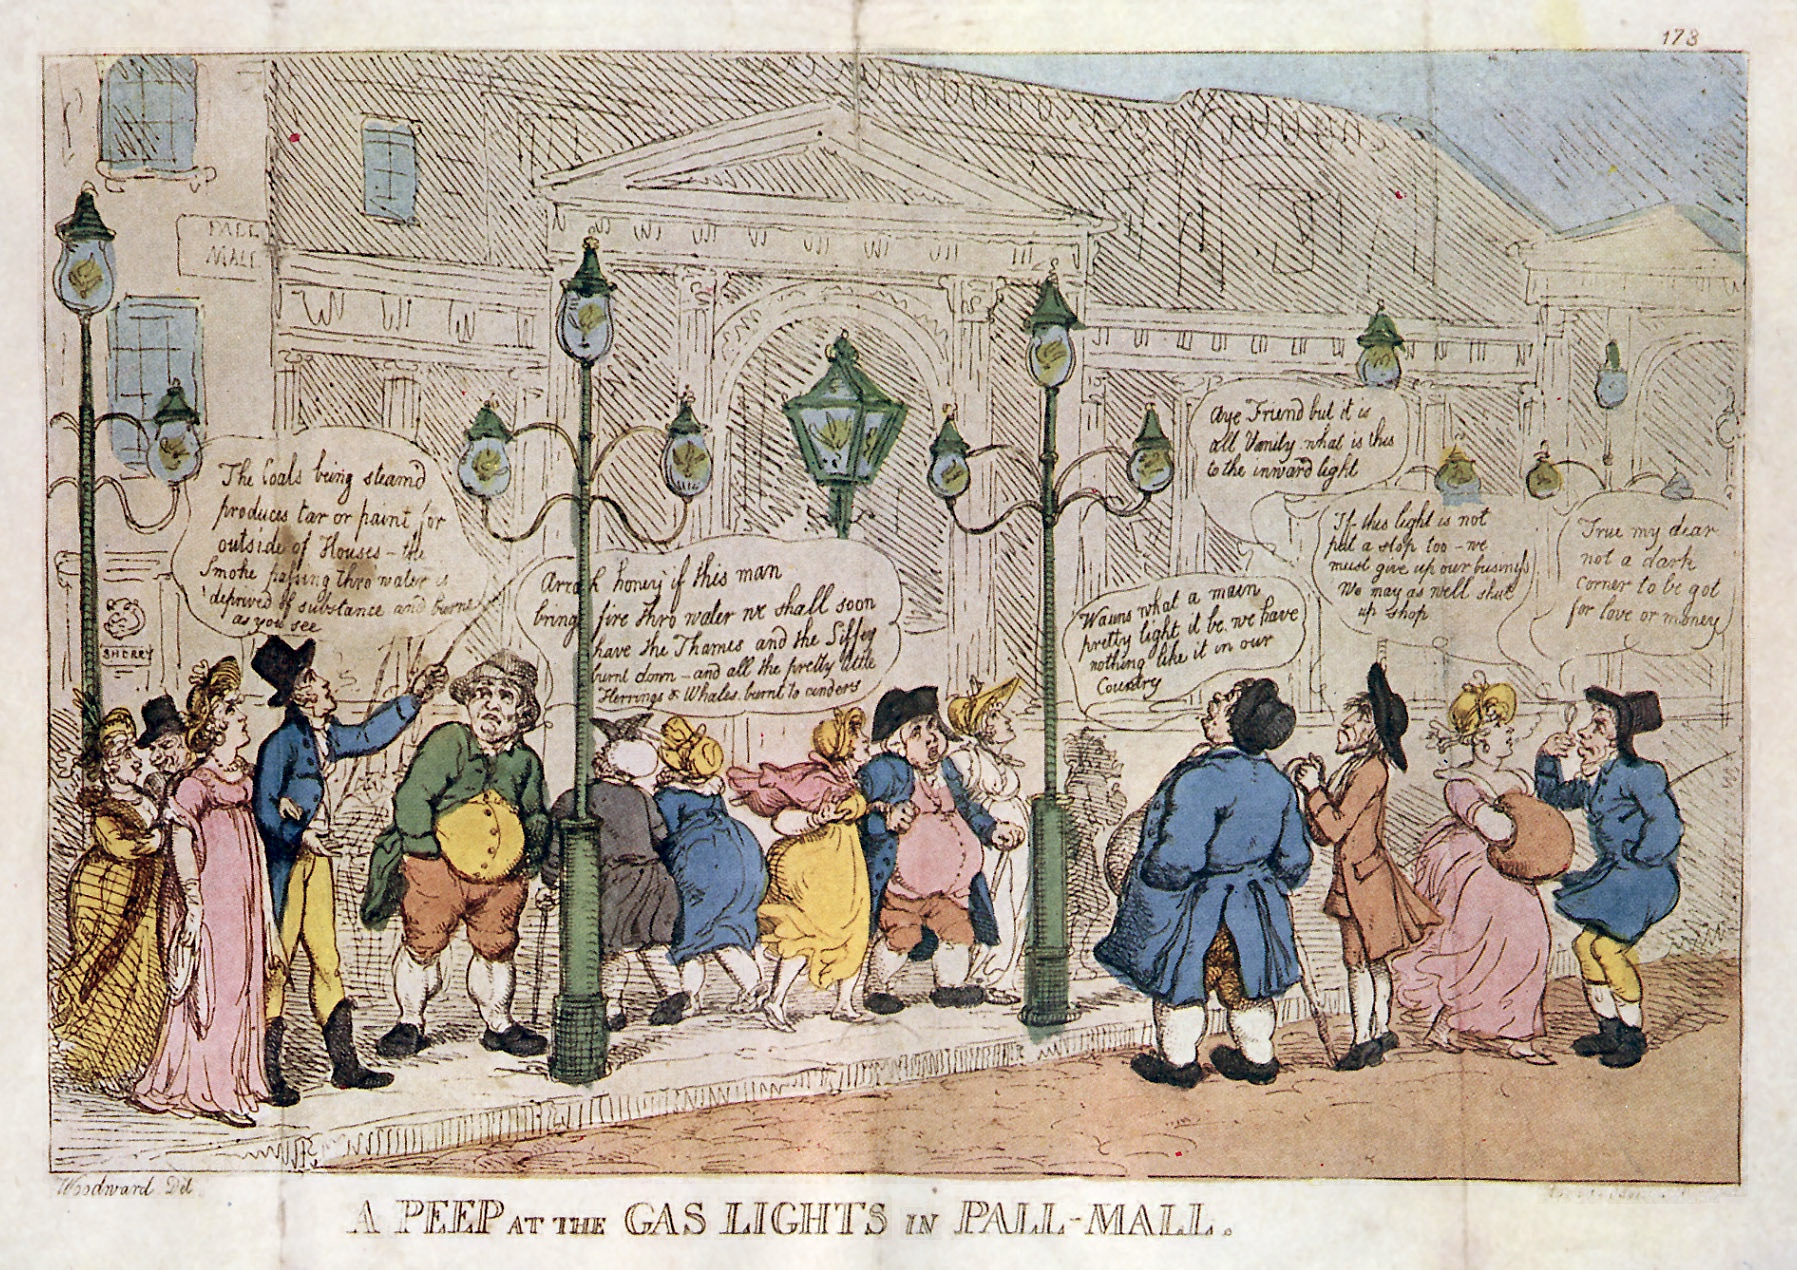 173
PALL
MALL
The Coals being steam'd
produces tar or paint for
outside of Houses – the
Smoke passing thro water is
deprived of substance and burns
as you see
Arrah honey if this man
brings fire thro water we shall soon
have the Thames and the Liffey
burnt down – and all the pretty little
Herrings & Whales burnt to cinders
Wauns what a main
pretty light it be we have
nothing like it in our
Country
Aye Friend but it is
all Vanity what is this
to the inward light
If this light is not
put a stop too – we
must give up our business
We may as well shut
up shop
True my dear
not a dark
corner to be got
for love or money
SHERRY
Woodward Del
A PEEP AT THE GAS LIGHTS IN PALL-MALL.